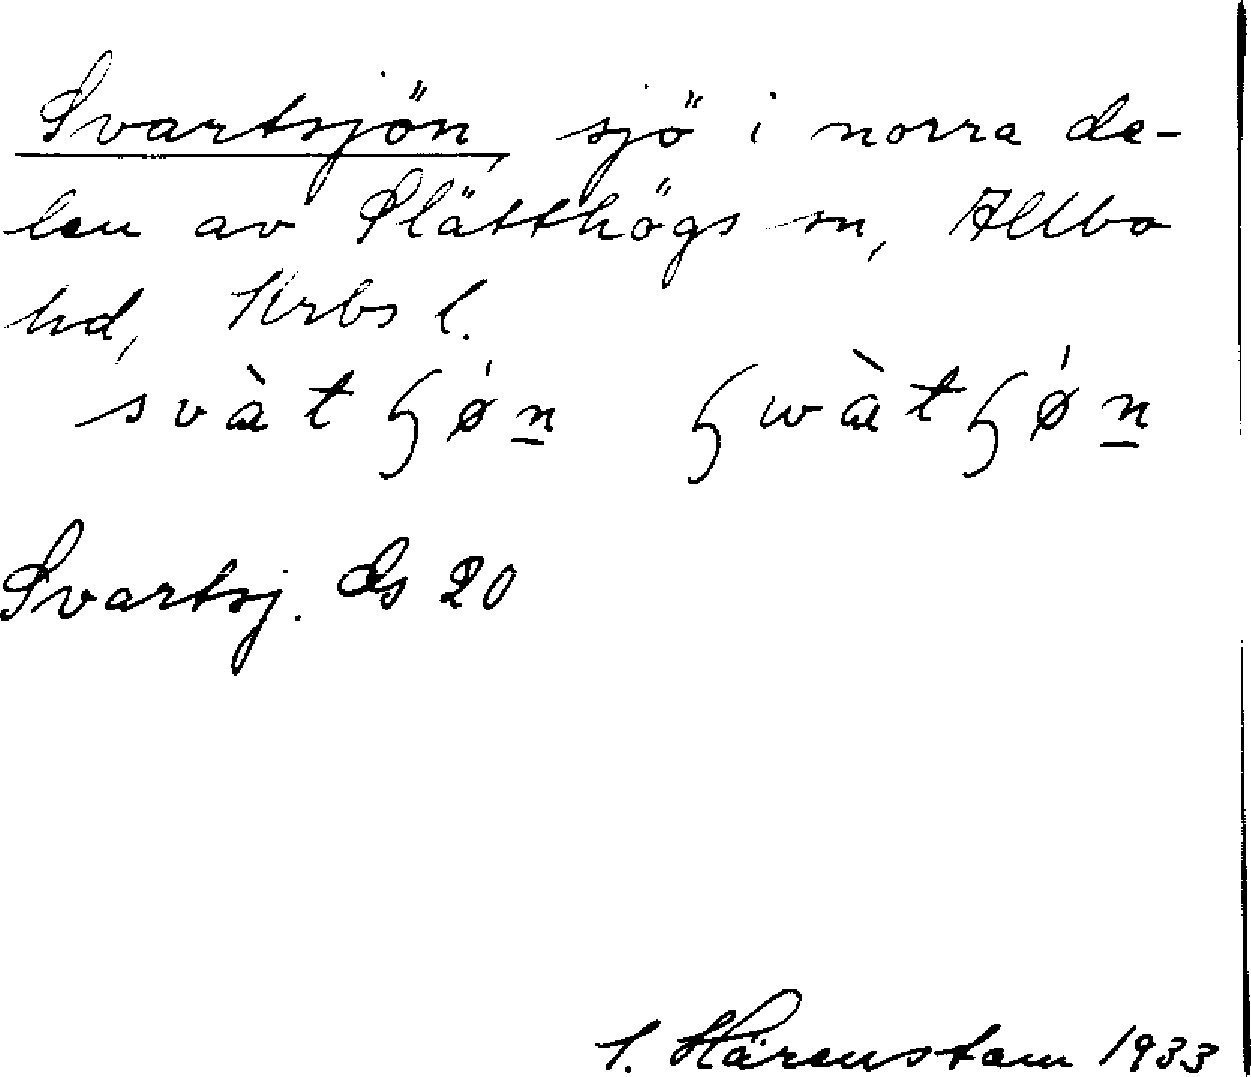 Svartsjön, sjö i norra de-
len av Slätthögs sn, Allbo
hd, Krbs l.
svàtɧǿn ɧwàtɧǿn
Svartsj. Gs 20
Härenstam 1933